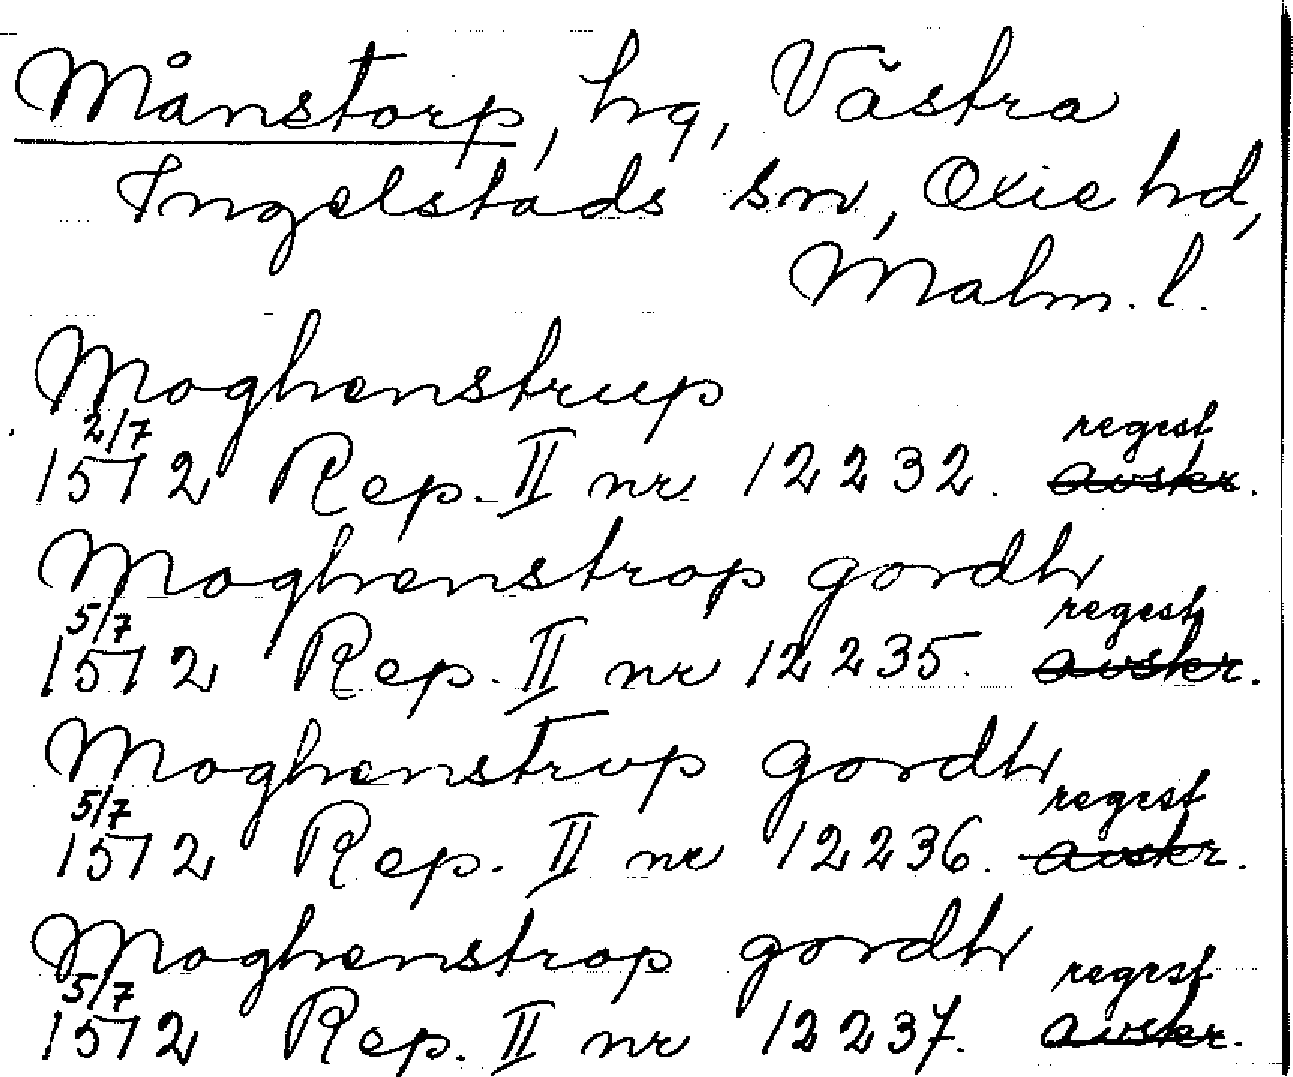 Månstorp, hg, Västra
Ingelstads sn, Oxie hd,
Malm. l.
Moghenstrup
2/7 regest
1572 Rep. II nr 12232. avskr.
Moghenstrop gordh
5/7 regest
1572 Rep. II nr 12235. avskr.
Moghenstrop gordh
5/7 regest
1572 Rep. II nr 12236. avskr.
Moghenstrop gordh
5/7 regest
1572 Rep. II nr 12237. avskr.